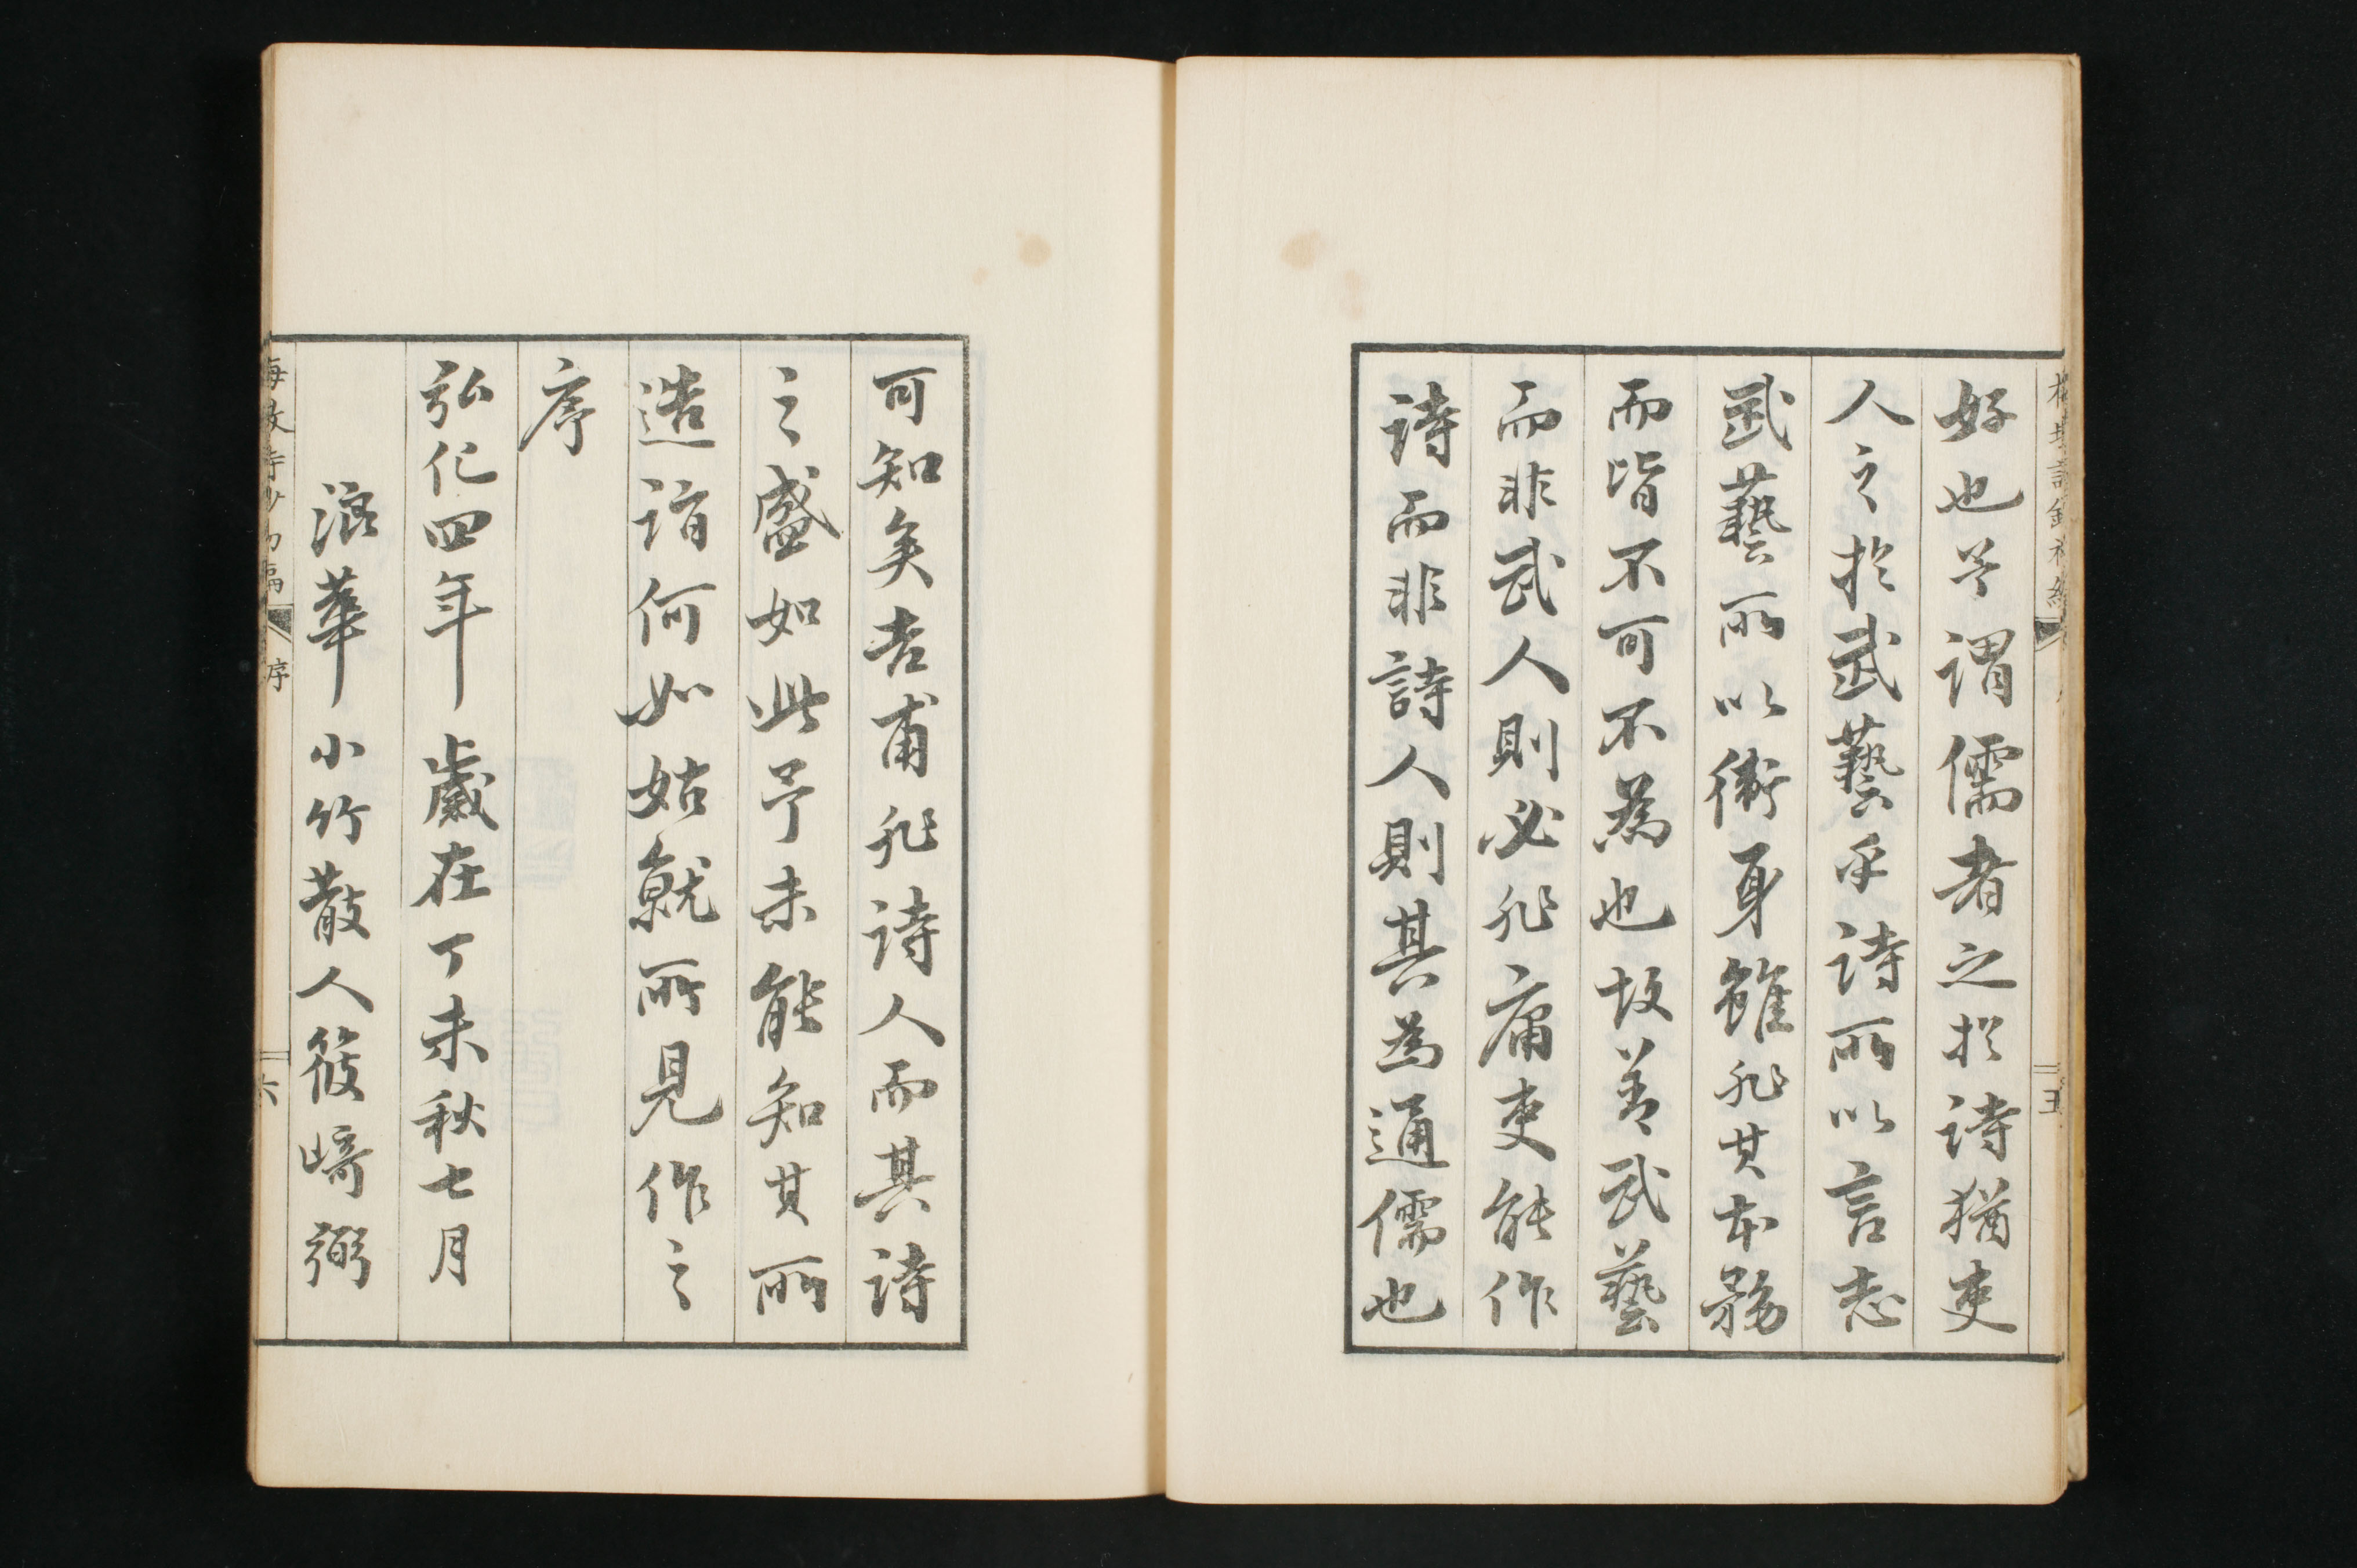 好也予謂儒者之於詩猶吏
人之於武藝乎詩所以言志
武藝所以衛身雖非其本務
而皆不可不為也故善武藝
而非武人則必非庸吏能作
詩而非詩人則其為通儒也
五
可知矣吉甫非詩人而其詩
之盛如此予未能知其所
造詣何如姑就所見作之
序
弘化四年歲在丁未秋七月
浪華小竹散人筱﨑弼
序
六